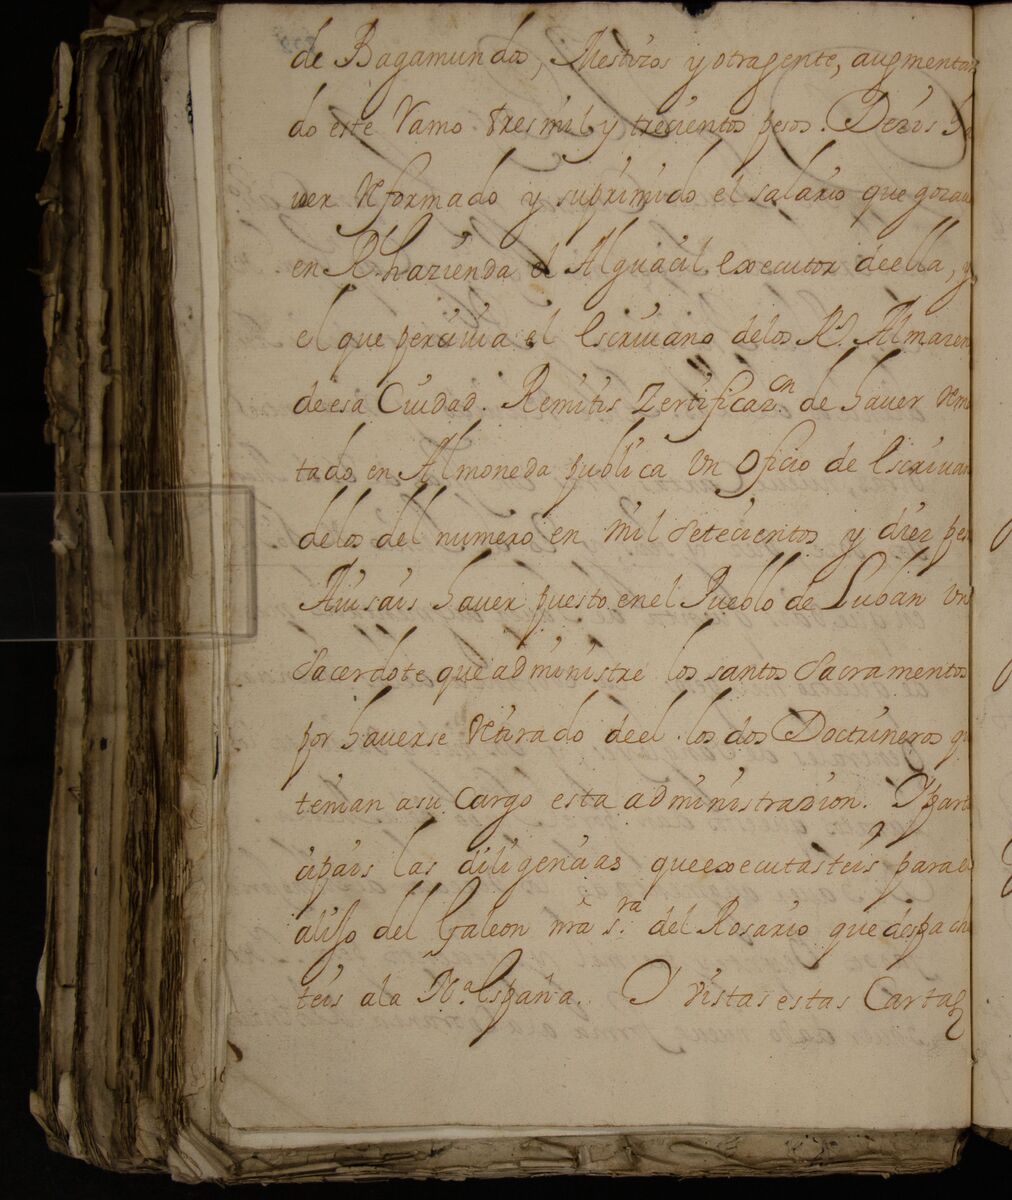 de Bagamundos, Mestizos y otra gente, augmentan
do este Ramo tres mil y trecientos pesos. Dezis ha
uer reformado y suprimido el salario que gozaua
en R.l hazienda el Alguacil executor de ella, y
el que perciuia el Escriuano de los R.s Almazen
de esa Ciudad. Remitis Zertificaz.on de hauer rema
tado en Almoneda publica un Oficio de Escriuan
de los del numero en mil setecientos y diez pes
Auisais hauer puesto en el Pueblo de Luban un
Sacerdote que administre los santos Sacramentos
por hauerse retirado de el los dos Doctrineros que
tenian a su cargo esta administracion. Y parti
cipais las diligencias que executasteis para el
alisso del Galeon nrã s.ra del Rosario que despacha
teis a la N.a España. Y vistas estas Cartas